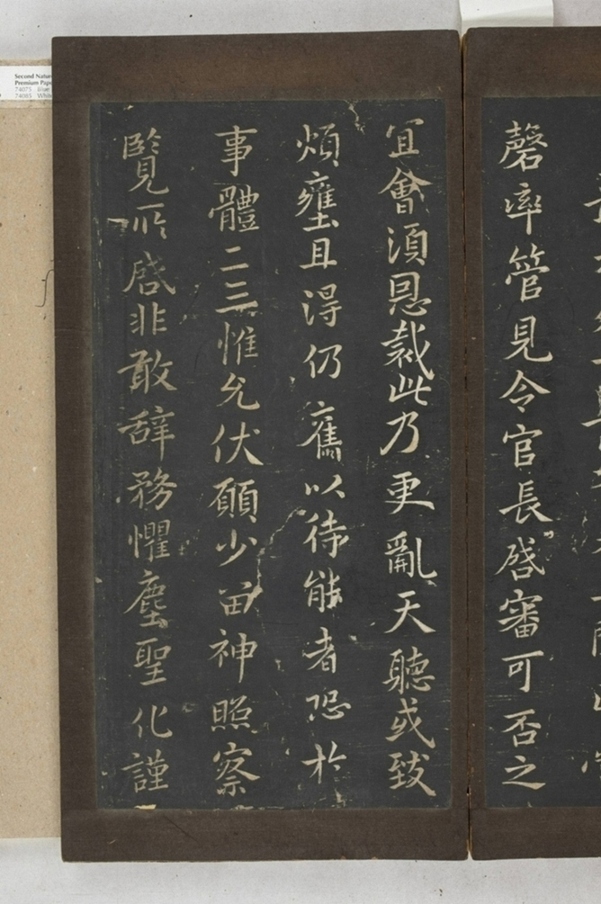 磬率管見令官長啓審可否之
宜會須恩裁此乃更亂天聽或致
煩壅且得仍舊以待能者恐於
事體二三惟允伏願少留神照察
覽所啓非敢辞務懼塵聖化謹
Second Natur
Premium Pap
74075
74085